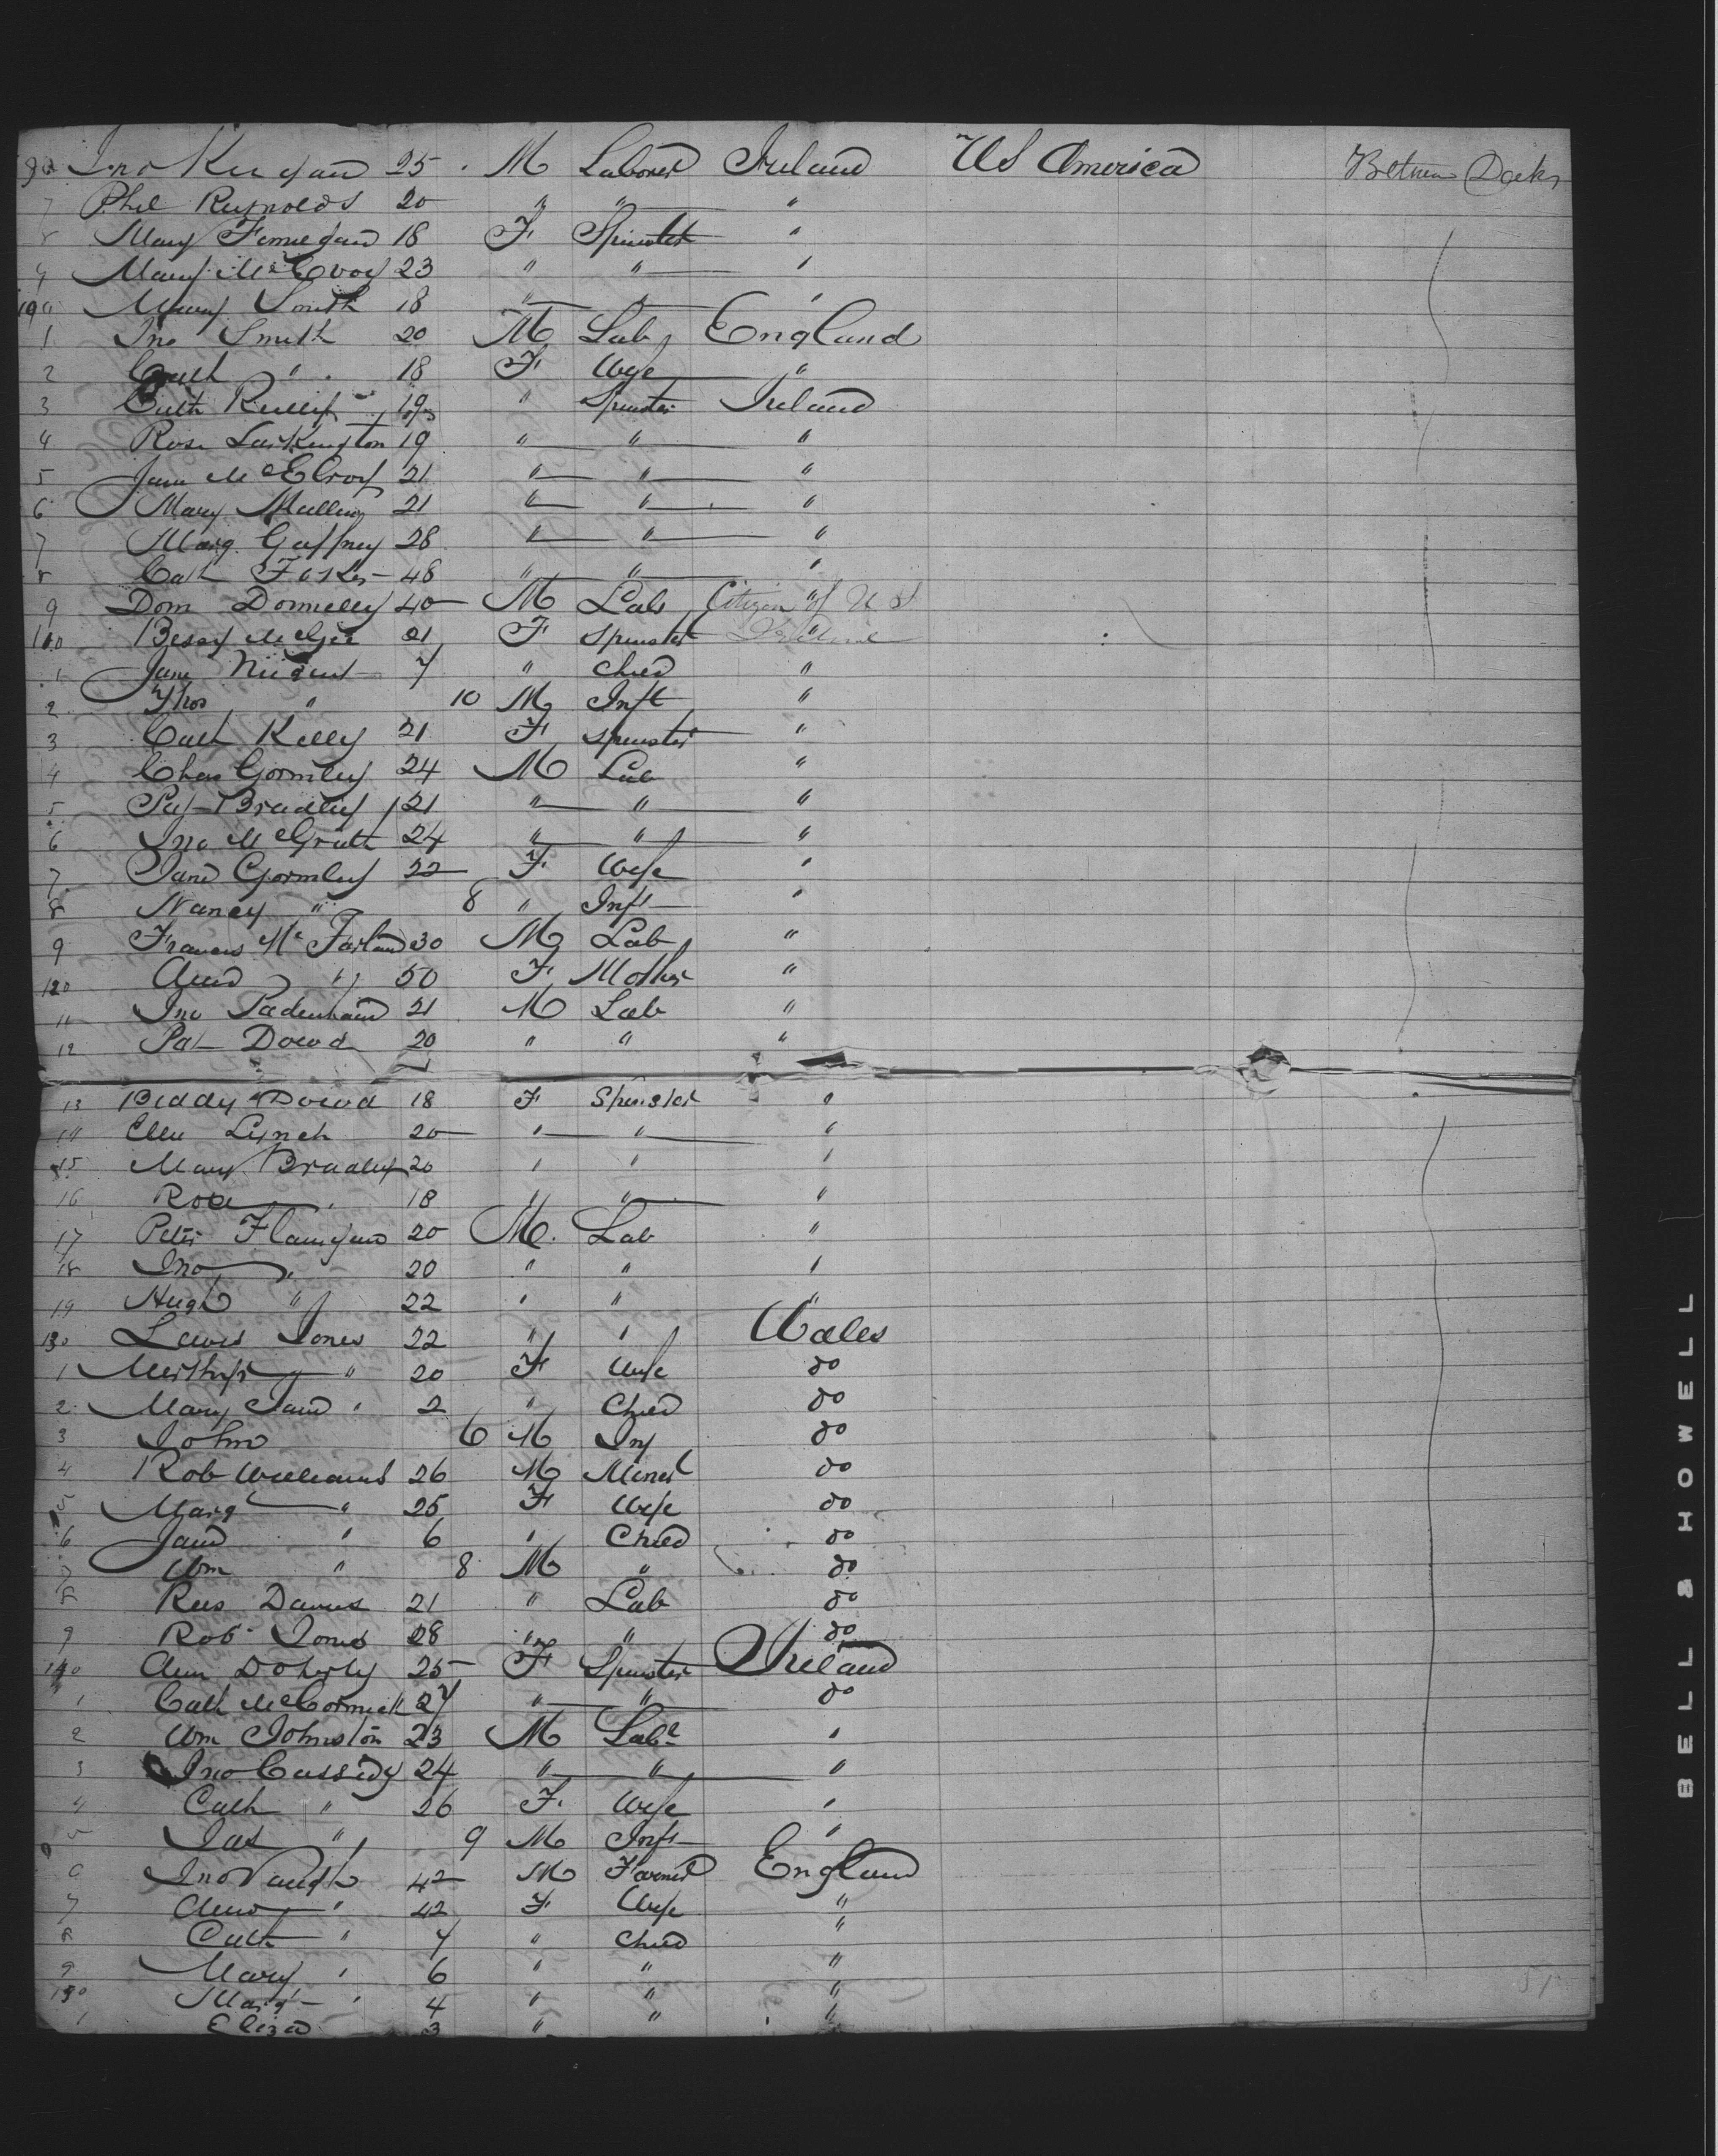 Jno 25 M Laborer Ireland US America Between Decks
7 Phil Reynolds 20 " " "
8 Mary Finnegan 18 F Spinster "
9 Mary McEvoy 23 " " "
Mary Smith 18 " " "
1 Jno Smith 20 M Lab England
2 Cath " 18 F Wife "
3 Cath Reilly 19 " Spinster Ireland
4 Rose Larkington 19 " " "
5 Jane McElroy 21 " " "
6 Mary Mullin 21 " " "
7 Marg Gaffney 28 " " "
8 Cath Foster 48 " " "
9 Dom Donnelly 40 M Lab Citizen of U S
110 Bessy McGee 21 F Spinster Ireland
1 Jane Nugent 7 " Child "
2 Thos " 10 M Inft "
3 Cath Kelly 21 F Spinster "
4 Chas Gormley 24 M Lab "
5 Pat Bradley 21 " " "
6 Jno McGrath 24 " " "
7 Jane Gormley 22 F Wife "
8 Nancy " 8 " Inft "
9 Francis McFarland 30 M Lab "
120 Ann " 50 F Mother "
11 Jno Padenham 21 M Lab "
12 Pat Dowd 20 " " "
13 Biddy Dowd 18 F Spinster "
14 Ellen Lynch 20 " " "
15 Mary Bradley 20 " " "
16 Rose " 18 " " "
17 Peter Flanigan 20 M. Lab "
18 Jno " 20 " " "
19 Hugh " 22 " " "
130 Lewis Jones 22 " " Wales
1 " 20 F Wife do
2 Mary Jane " 2 " Child do
3 John 6 M Inf do
4 Rob Williams 26 M Miner do
5 Marg " 25 F Wife do
6 Jane " 6 " Child do
7 Wm " 8 M " do
8 Rees Davies 21 " Lab do
9 Rob Jones 28 " " do
140 Ann Doherty 25 F Spinster Ireland
1 Cath McCormick 27 " " do
2 Wm Johnston 23 M Labr "
3 Jno Cassidy 24 " " "
4 Cath " 26 F. Wife "
5 Jas " 9 M Inft "
6 Jno Vaugh 42 M Farmer England
7 Ann " 42 F Wife "
8 Cath " 7 " Child "
9 Mary " 6 " " "
150 Marg " 4 " " "
1 Eliza 3 " " "
51
BELL & HOWELL